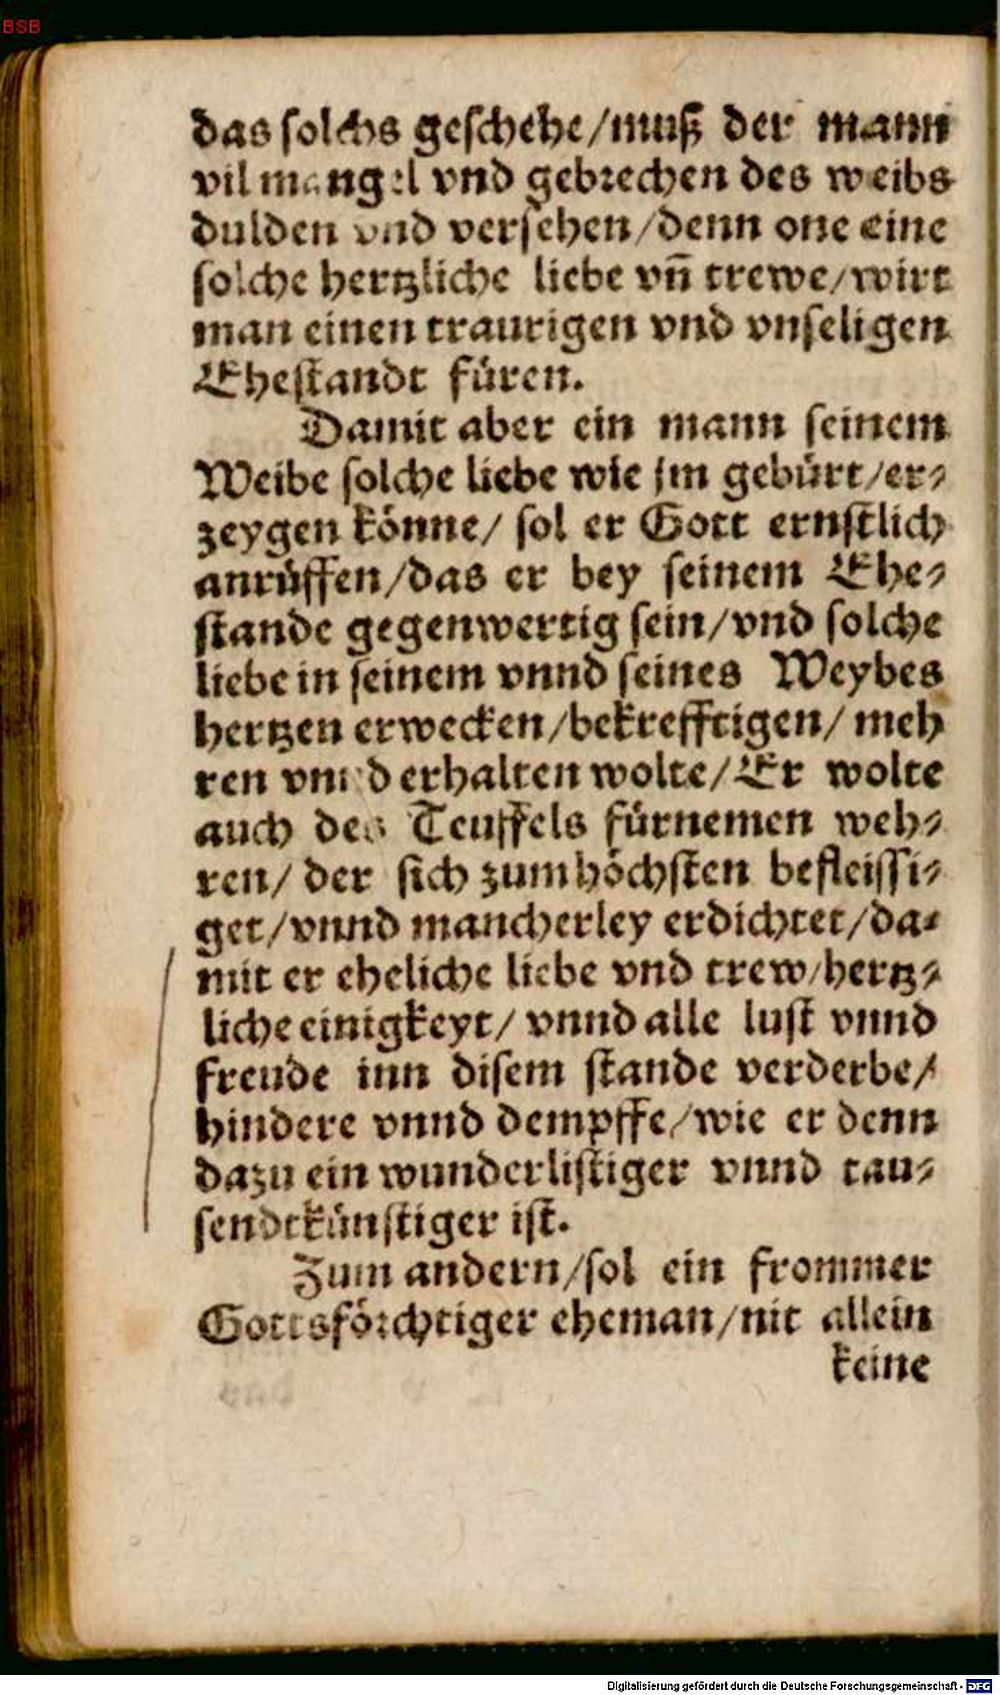 BSB
das solchs geschehe/muß der mann
vil mangel vnd gebrechen des weibs
dulden vnd versehen/denn one eine
solche hertzliche liebe vñ trewe/wirt
man einen traurigen vnd vnseligen
Ehestandt füren.
Damit aber ein mann seinem
Weibe solche liebe wie jm gebürt/er⸗
zeygen könne/ sol er Gott ernstlich
anrüffen/das er bey seinem Ehe⸗
stande gegenwertig sein/vnd solche
liebe in seinem vnnd seines Weybes
hertzen erwecken/bekrefftigen/ meh
ren vnnd erhalten wolte/Er wolte
auch des Teuffels fürnemen weh⸗
ren/ der sich zum höchsten befleissi⸗
get/vnnd mancherley erdichtet/da⸗
mit er eheliche liebe vnd trew/hertz⸗
liche einigkeyt/ vnnd alle lust vnnd
freude inn disem stande verderbe/
hindere vnnd dempffe/wie er denn
dazu ein wunderlistiger vnnd tau⸗
sendtkünstiger ist.
Zum andern/sol ein frommer
Gottsförchtiger eheman/nit allein
keine
Digitalisierung gefördert durch die Deutsche Forschungsgemeinschaft - DFG